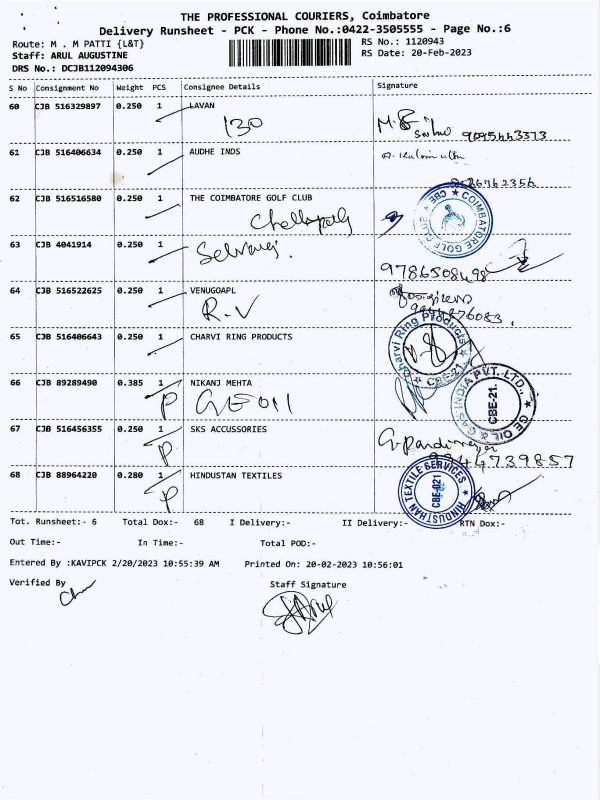 THE PROFESSIONAL COURIERS, Coimbatore
Delivery Runsheet - PCK - Phone No.:0422-3505555 - Page No.:6
Route: M . M PATTI {L&T}
RS No.: 1120943
Staff: ARUL AUGUSTINE
RS Date: 20-Feb-2023
DRS No.: DCJB112094306
S No Consignment No Weight PCS Consignee Details Signature
60 CJB 516329897 0.250 1 LAVAN
130
61 CJB 516406634 0.250 1 AUDHE INDS
62 CJB 516516580 0.250 1 THE COIMBATORE GOLF CLUB
COIMBATORE GOLF CLUB ★ CBE ★
63 CJB 4041914 0.250 1
9786508498
64 CJB 516522625 0.250 1 VENUGOAPL
R.V
65 CJB 516406643 0.250 1 CHARVI RING PRODUCTS
Charvi Ring Products ★ CBE-21. ★
66 CJB 89289490 0.385 1 NIKANJ MEHTA
P GEOIL
GEOIL & GAS INDIA PVT. LTD., ★ CBE-21. ★
67 CJB 516456355 0.250 1 SKS ACCUSSORIES
P
9944739857
68 CJB 88964220 0.280 1 HINDUSTAN TEXTILES
P
HINDUSTHAN TEXTILE SERVICES ★ CBE-021 ★
Tot. Runsheet:- 6 Total Dox:- 68 I Delivery:- II Delivery:- RTN Dox:-
Out Time:- In Time:- Total POD:-
Entered By :KAVIPCK 2/20/2023 10:55:39 AM Printed On: 20-02-2023 10:56:01
Verified By Staff Signature